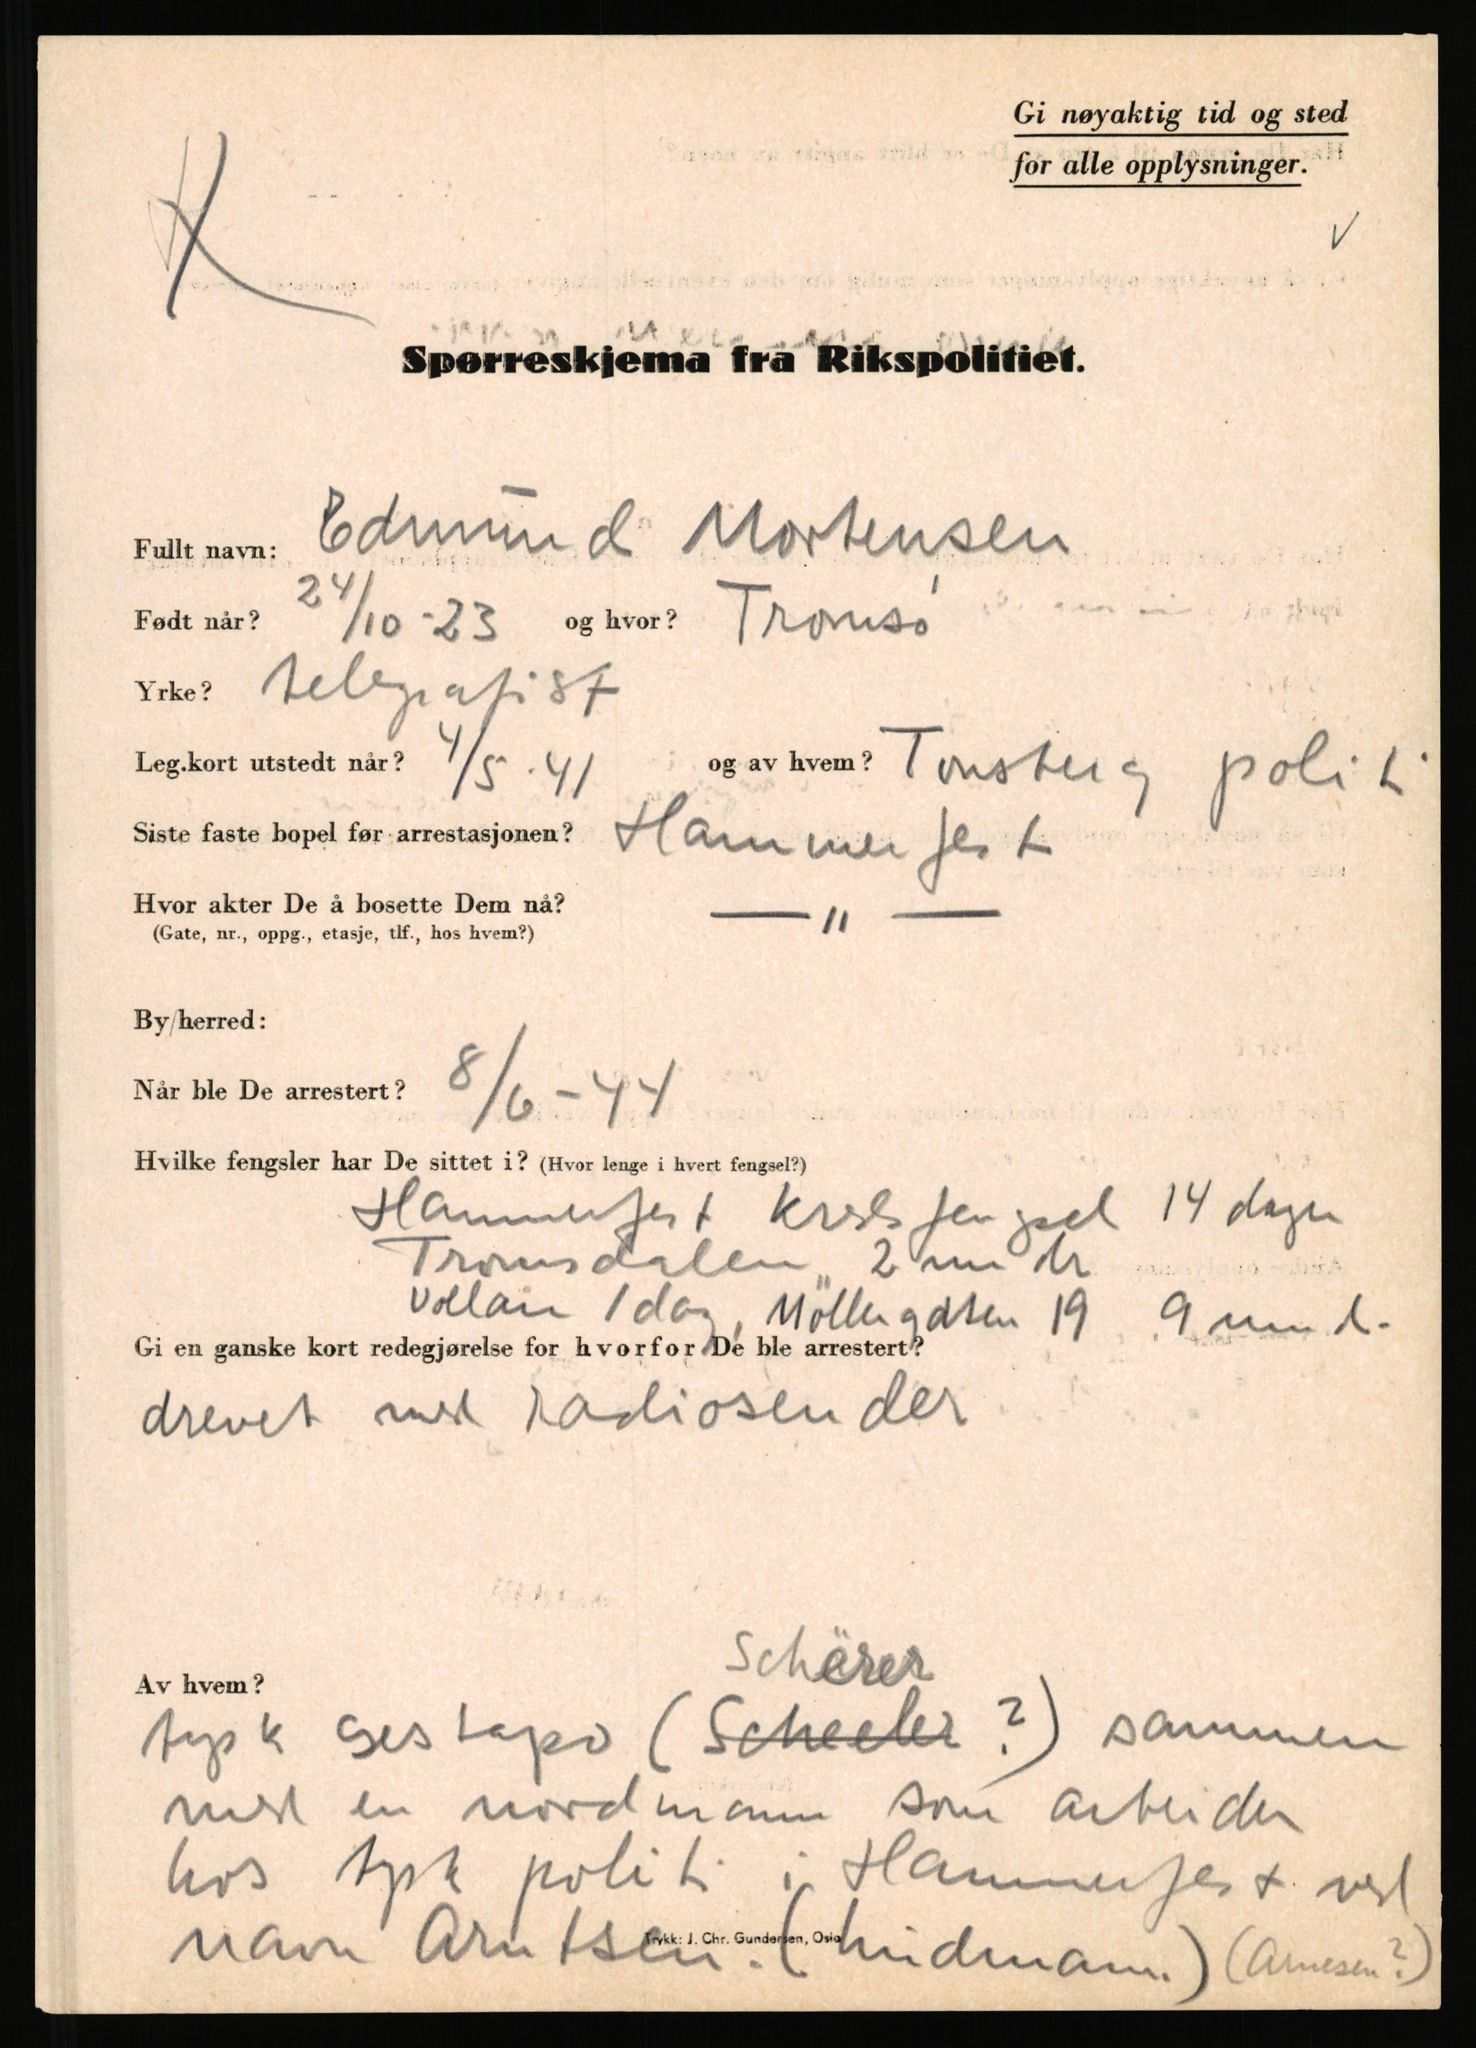 Gi nøyaktig tid og sted
for alle opplysninger.
Spørreskjema fra Rikspolitiet.
Fullt navn: Edmund Mortensen
Født når? 24/10-23 og hvor? Tromsø
Yrke? telegrafist
Leg.kort utstedt når? 4/5-41 og av hvem? Tønsberg politi
Siste faste bopel før arrestasjonen? Hammerfest
Hvor akter De å bosette Dem nå? — " —
(Gate, nr., oppg., etasje, tlf., hos hvem?)
By/herred:
Når ble De arrestert? 8/6-44
Hvilke fengsler har De sittet i? (Hvor lenge i hvert fengsel?)
Hammerfest kretsfengsel 14 dager
Tromsdalen 2 mndr
Vollan 1 dag, Møllergaten 19 9 mnd.
Gi en ganske kort redegjørelse for hvorfor De ble arrestert?
drevet med radiosender
Schërer
Av hvem?
tysk gestapo (Scheeler?) sammen
med en nordmann som arbeider
hos tysk politi i Hammerfest ved
navn Arntsen. (hudmann.) (Arnesen?)
Trykk: J. Chr. Gundersen, Oslo